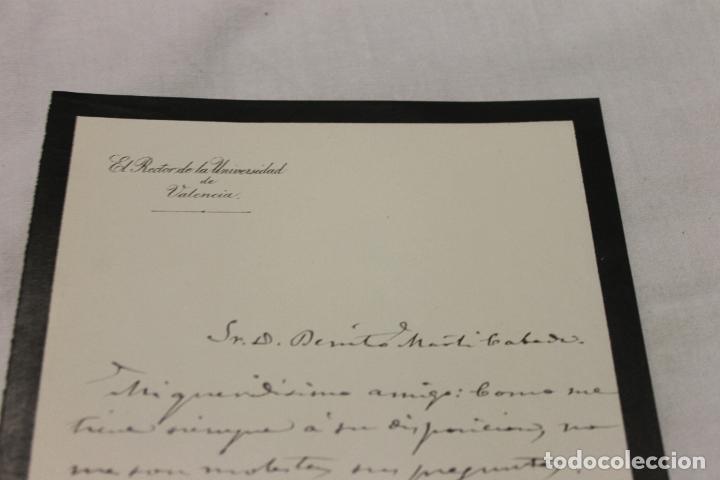 El Rector de la Universidad
de
Valencia.
Sr. D. Benito Martí
Mi queridisimo amigo: Como me
tiene siempre á su disposicion, no
me son molestas sus preguntas.
todocoleccion